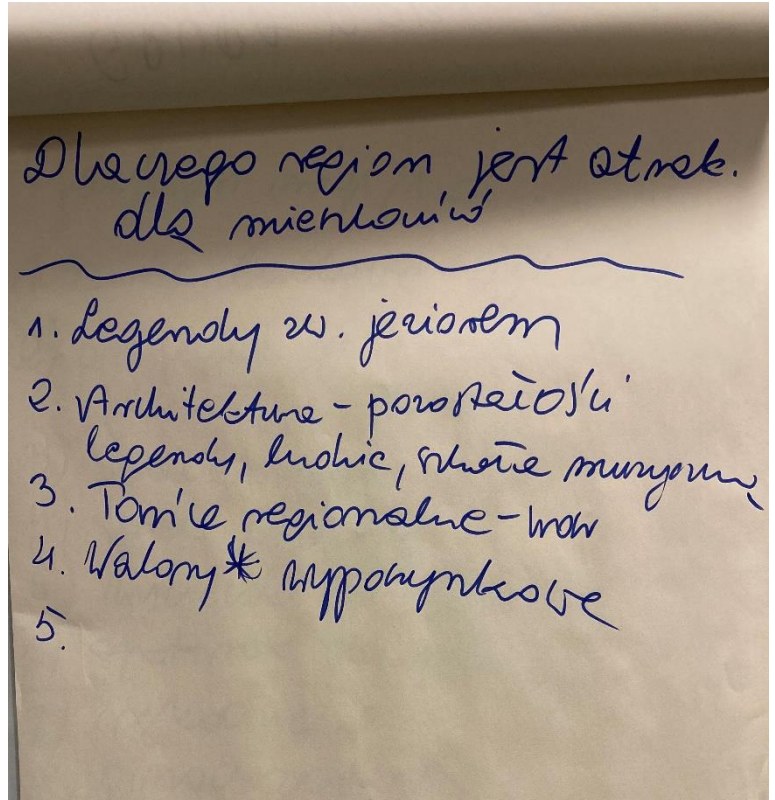 Dlaczego region jest atrak.
dla mieszkańców
1. Legendy zw. jeziorem
2. Architektura - pozostałości
legendy, szkołę muzyczną
3. Tańce regionalne -
4. Walory * wypoczynkowe
5.